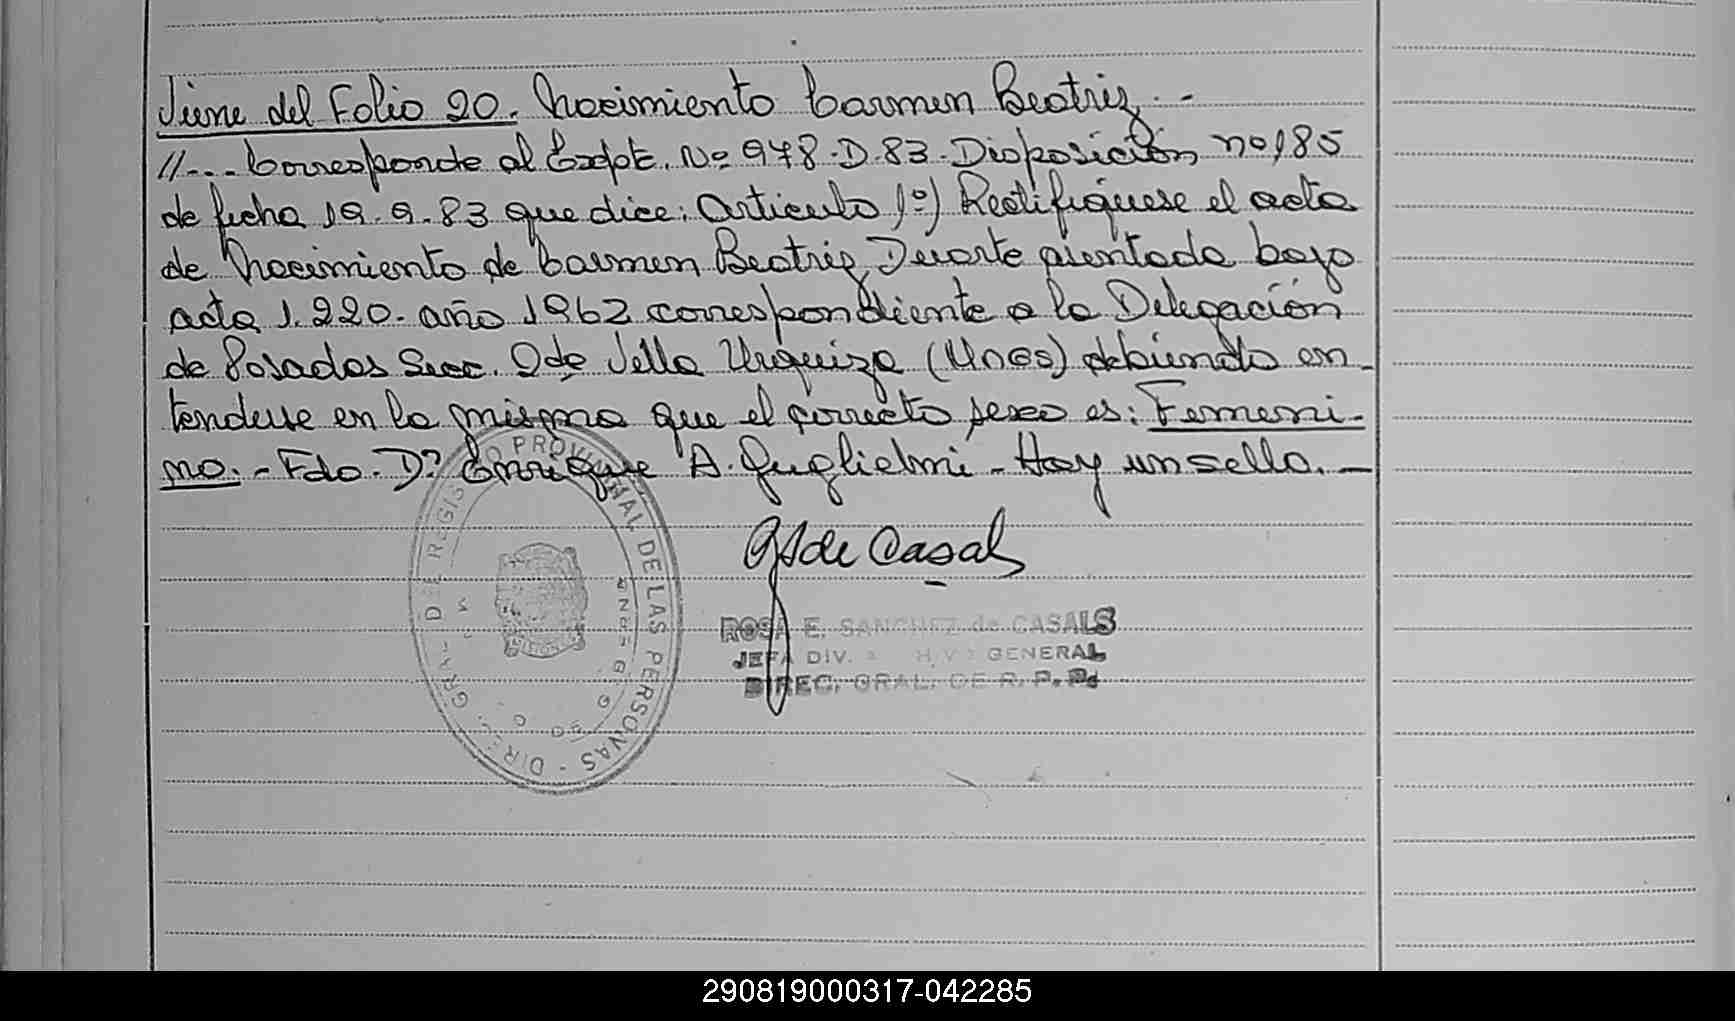 Viene del Folio 20. Nacimiento Carmen Beatriz.-
//... Corresponde al Expte. Nº 978.D.83. Disposición nº 185
de fecha 19.9.83 que dice: Articulo 1º) Rectifiquese el acta
de Nacimiento de Carmen Beatriz Duarte asentada bajo
acta 1.220. año 1962 correspondiente a la Delegación
de Posadas Secc. 2da Villa Urquiza (Mnes) debiendo en-
tenderse en la misma que el correcto sexo es: Femeni-
no.- Fdo. Dr Enrique A. Guglielmi - Hay un sello. -
de Casals
ROSA E. SANCHEZ de CASALS
JEFA DIV. GENERAL
DIREC. GRAL. DE R. P. P.
DIREC. GRAL. DE REGISTRO PROVINCIAL DE LAS PERSONAS
290819000317-042285